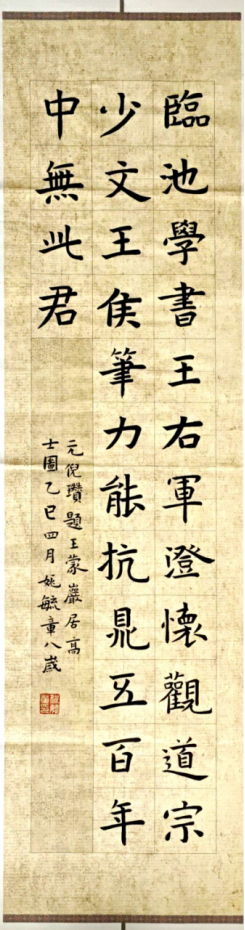 臨池學書王右軍澄懷觀道宗
少文王侯筆力能抗鼎五百年
中無此君
元倪瓚題王蒙巖居高
士圖乙巳四月姚毓童八歲